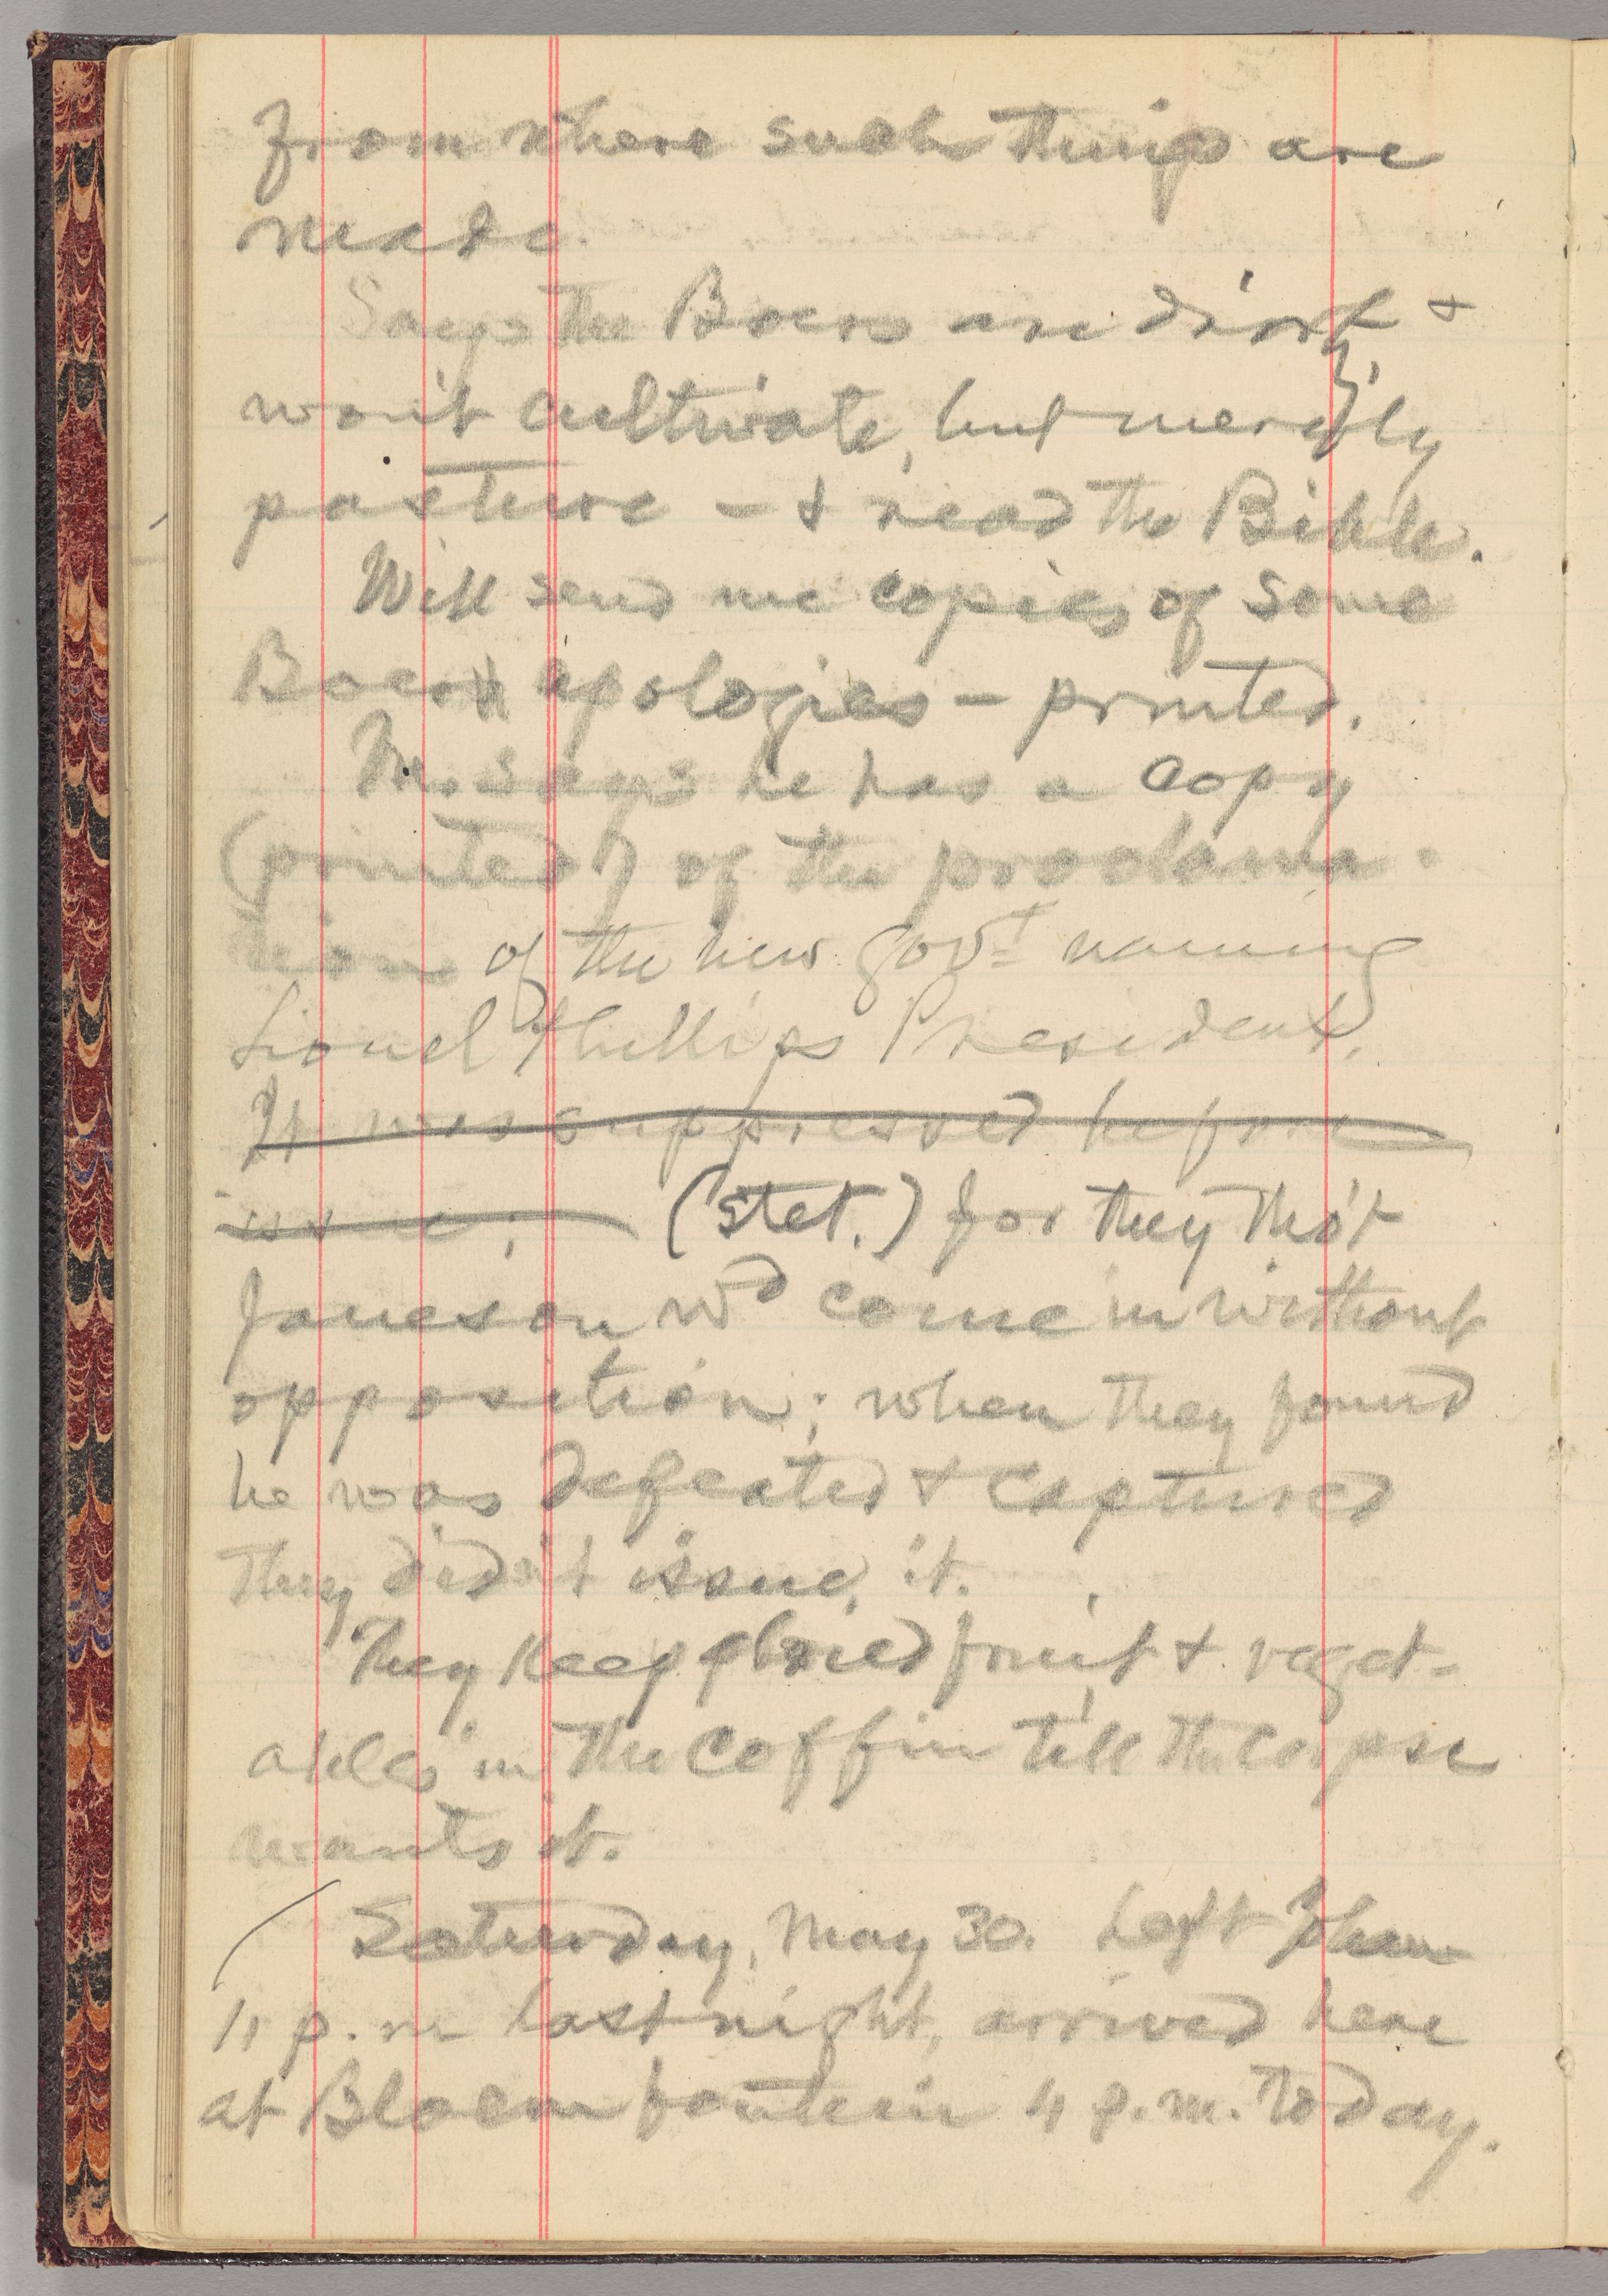 from where such things are
made.
Says the Boers are dirty &
won't cultivate, but merely
pasture — & read the Bible.
Will send me copies of some
Boer apologies — printed.
M. says he has a copy
(printed) of the proclama-
tion of the new gov<sup>t</sup> naming
Lionel Phillips President.
It was suppressed before
issue; (stet.) for they tho't
Jameson w<sup>d</sup> come in without
opposition; when they found
he was defeated & captured
they didn't issue it.
They keep dried fruit & veget-
ables in the coffin till the corpse
wants it.
Saturday, May 30. Left Johan
11 p.m last night, arrived here
at Bloemfontein 4 p.m. today.